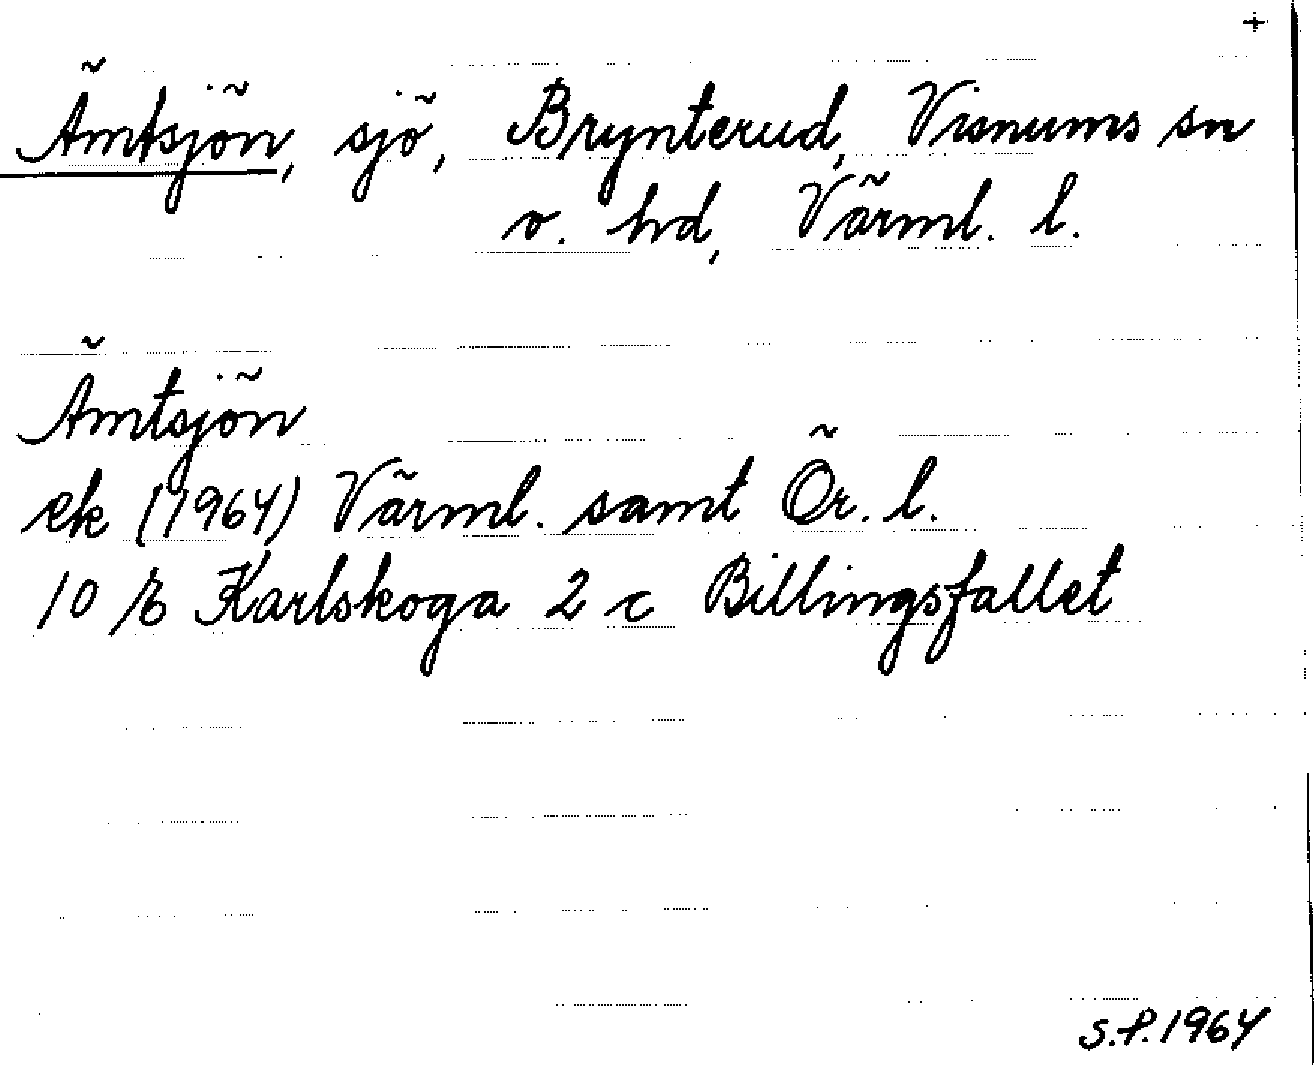 +
Ämtsjön, sjö, Brynterud, Visnums sn
o. hd, Värml. l.
Ämtsjön
ek (1964) Värml. samt Ör. l.
10 E Karlskoga 2 c Billingsfallet
S.P. 1964